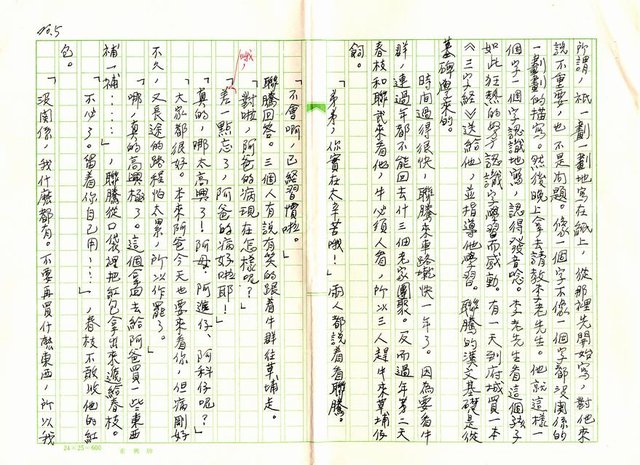 所謂，祇一劃一劃地寫在紙上，從那裡先開始寫，對他來
說不重要，也不是問題。像一個字不像一個字都沒關係的
一劃一劃的描寫。然後晚上拿去請教李老先生。他就這樣一
個字一個字認識地寫，認得發音唸。李老先生看這個孩子
如此狂熱的學認識字學習而感動，有一天到府城買一本
《三字經》送給他，並指導他學習。聯騰的漢文基礎是從
墓碑學來的。
時間過得很快，聯騰來車路墘快一年了。因為要看牛
群，連過年都不能回去什三個老家團聚。反而過年第二天
春枝和聯武來看他，牛必須人看，所以三人趕牛來草埔依
飼。
「弟弟，你實在太辛苦哦！」兩人都說着看聯騰。
「不會啊，已經習慣啦。」
聯騰回答。三個人有說有笑的跟着牛群往草埔走
「對啦，阿爸的病現在怎樣呢？」
「哦，差一點忘了，阿爸的病好啦耶！」
「真的，哪太高興了！阿母、阿進仔、阿科仔呢？」
「大家都很好。本來阿爸今天也要來看你，但病剛好
不久，又長途的路程怕太累，所以作罷了。」
「哪，真的高興極了。這個拿回去給阿爸買一些東西
補一補⋯⋯」，聯騰從口袋裡把紅包拿出來遞給春枝。
「不必了。留着你自己用⋯⋯」，春枝不敢收他的紅
包。
「沒關係，我什麼都有。不要再買什麼東西，所以我
20.5
24×25=600